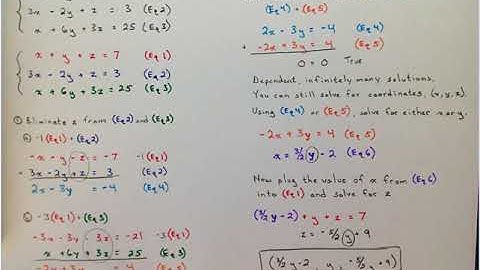 3x - 2y + z = 3 (Eq2)
x + 6y + 3z = 25 (Eq3)
x + y + z = 7 (Eq1)
3x - 2y + z = 3 (Eq2)
x + 6y + 3z = 25 (Eq3)
① Eliminate z from (Eq2) and (Eq3)
ⓐ -1(Eq1) + (Eq2)
-x - y - z = -7 -1(Eq1)
3x - 2y + z = 3 (Eq2)
2x - 3y = -4 (Eq4)
ⓑ -3(Eq1) + (Eq3)
-3x - 3y - 3z = -21 -3(Eq1)
x + 6y + 3z = 25 (Eq3)
-2x + 3y = 4 (Eq5)
(Eq4) + (Eq5)
2x - 3y = -4 (Eq4)
+ -2x + 3y = 4 (Eq5)
0 = 0 True
Dependent, infinitely many solutions.
You can still solve for coordinates, (x, y, z).
Using (Eq4) or (Eq5), solve for either x or y.
-2x + 3y = 4 (Eq5)
x = 3/2 y - 2 (Eq6)
Now plug the value of x from (Eq6)
into (Eq1) and solve for z
(3/2 y - 2) + y + z = 7
z = -5/2 y + 9
(3/2 y - 2, y, -5/2 y + 9)